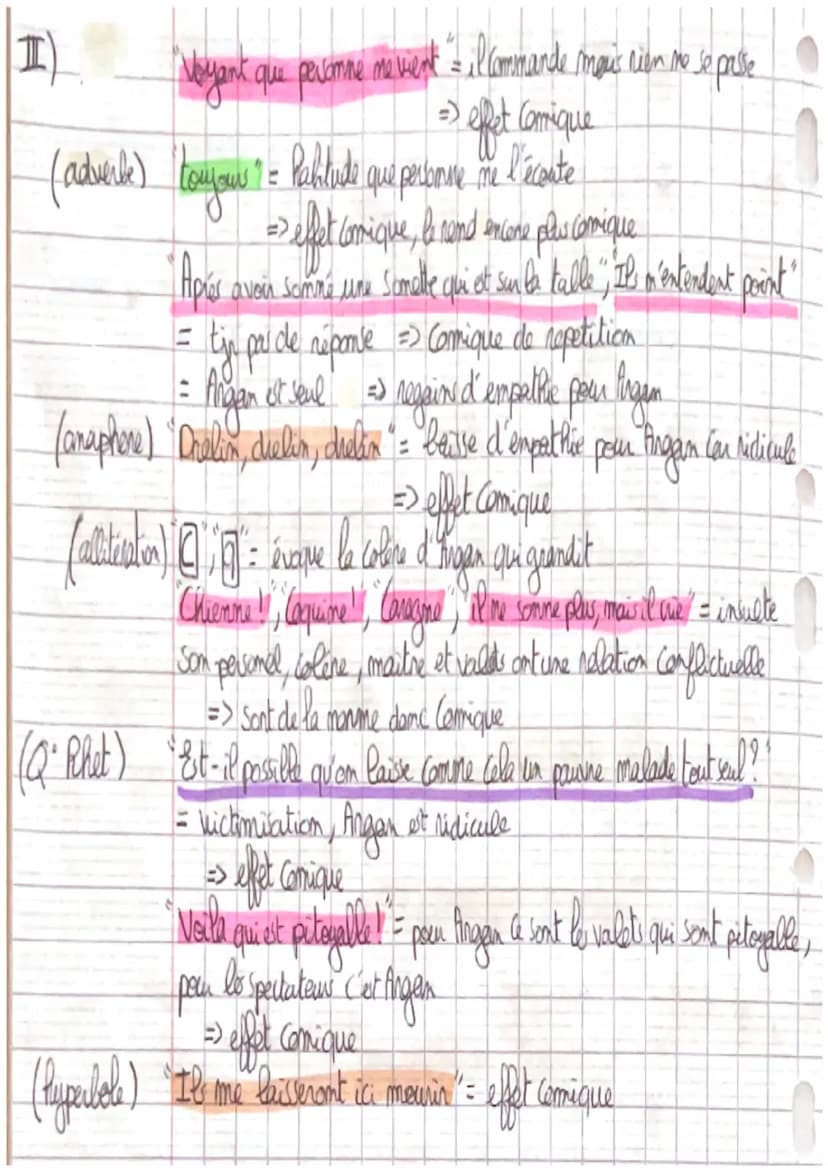 II) "Voyant que personne ne vient" = il commande mais rien ne se passe
=> effet comique
(adverbe) "toujours" = l'habitude que personne ne l'écoute
=> effet comique, le rend encore plus comique
"Après avoir sonné une sonnette qui est sur la table", "Ils n'entendent point"
= tjr pas de réponse => Comique de repetition
= Argan est seul => regains d'empathie pour Argan
(anaphore) "Drelin, drelin, drelin" = baisse d'empathie pour Argan car ridicule
=> effet comique
(allitération) "C", "q" = évoque la colère d'Argan qui grandit
"Chienne!", "Coquine!", "Carogne", "il ne sonne plus, mais il crie" = insulte
son personel, colère, maitre et valets ont une relation conflictuelle
=> sort de la norme donc comique
(Q° Rhet) "Est-il possible qu'on laisse comme cela un pauvre malade tout seul?"
= victimisation, Argan est ridicule
=> effet comique
"Voilà qui est pitoyable!" = pour Argan ce sont les valets qui sont pitoyable,
pour les spectateurs c'est Argan
=> effet comique
(hyperbole) "Ils me laisseront ici mourir" = effet comique